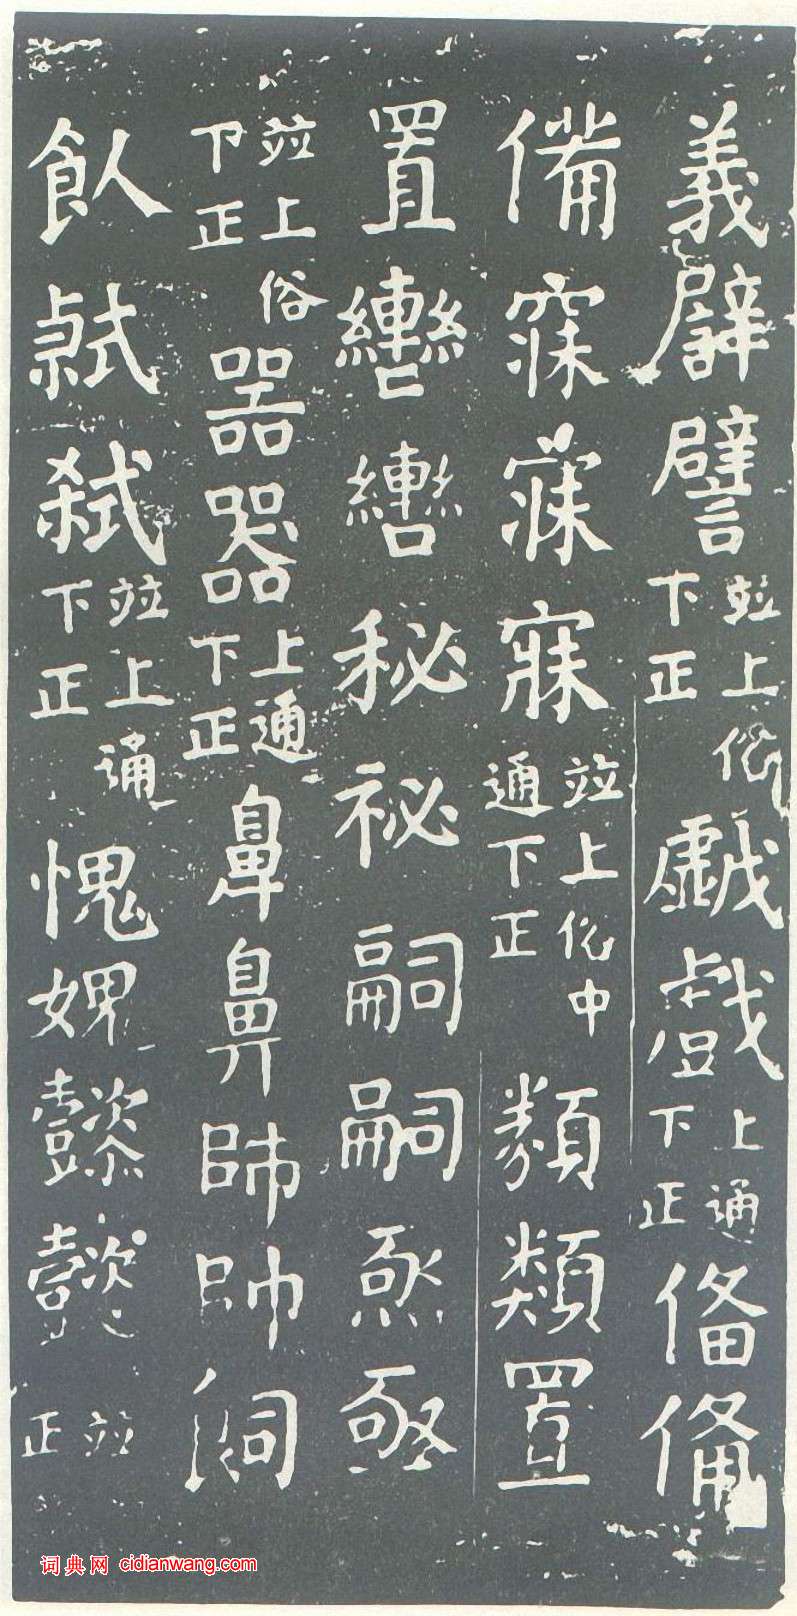 義譬並上俗下正戱戲上通下正俻俻
備寐並上俗中通下正類類置
置轡轡秘祕嗣嗣亟
並上俗下正器器上通下正鼻鼻師帥飼
飤弑並上通下正愧媿懿懿並正
词典网 cidianwang.com